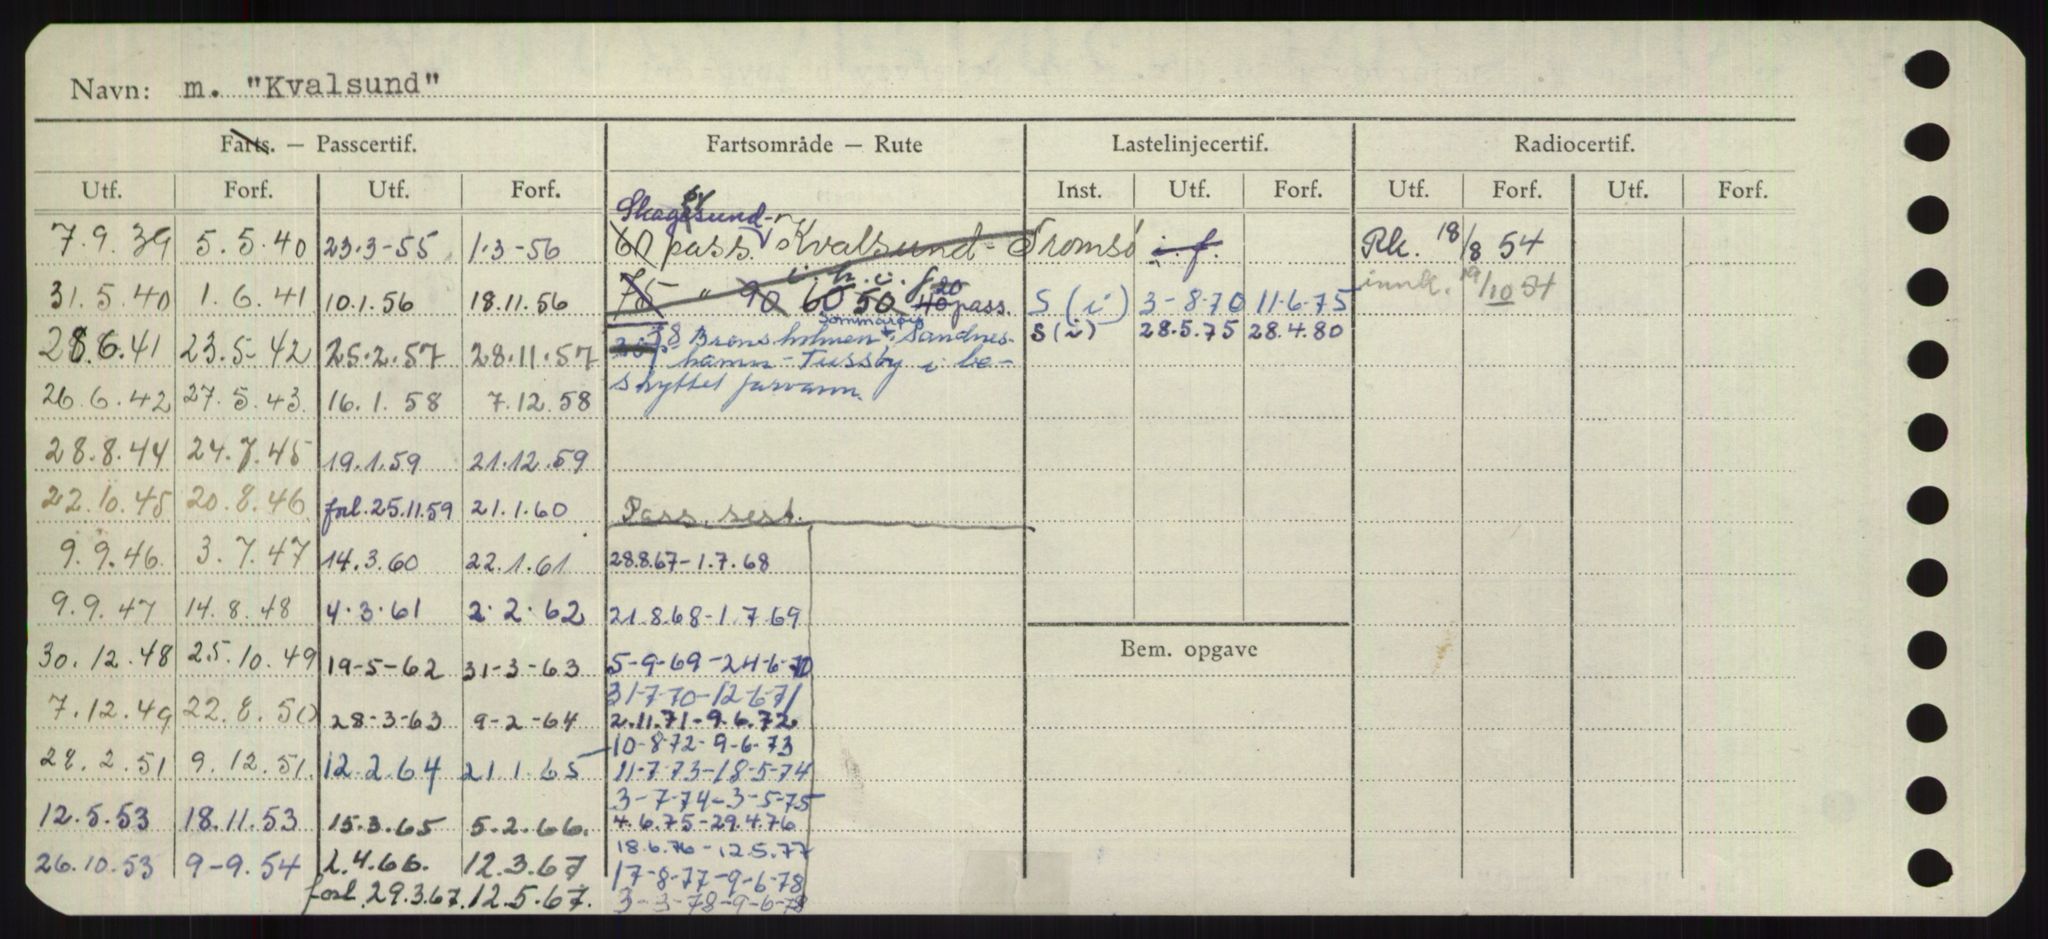 Navn: m. "Kvalsund"
Farts. — Passcertif. Fartsområde — Rute Lastelinjecertif. Radiocertif.
Utf. Forf. Utf. Forf. Inst. Utf. Forf. Utf. Forf. Utf. Forf.
Skagøsund-
7.9.39 5.5.40 23.3-55 1.3-56 60 pass. Kvalsund - Tromsø i.f. Rk. 18/8 54
i.h.i.f. 20
31.5.40 1.6.41 10.1.56 18.11.56 75 " 90 60 50 40 pass. S (i) 3-8-70 11-6-75 innk. 19/10 54
Sommarøy
28.6.41 23.5-42 25.2.57 28.11.57 38 Brensholmen - Sandnes- S (i) 28.5.75 28.4.80
hamn - Tussøy i be-
skyttet farvann.
26.6.42 27.5.43 16.1.58 7.12.58
28.8.44 24.7.45 19.1.59 21.12.59
22.10.45 20.8.46 forl. 25.11.59 21.1.60 Pass. sert.
9.9.46 3.7.47 14.3.60 22.1.61 28.8.67-1.7.68
9.9.47 14.8.48 4.3.61 2.2.62 21.8.68-1.7.69
30.12.48 25.10.49 19-5-62 31-3-63 5-9-69-24-6-70
31-7-70-12-6-71
7.12.49 22.8.50 28-3-63 9-2-64 2.11.71-9.6.72
10-8-72-9-6-73
28.2.51 9.12.51. 12.2.64 21.1.65 11-7-73-18-5-74
3-7-74-3-5-75
12.5.53 18.11.53 15.3.65 5.2.66. 4.6.75-29.4.76
18.6.76-12.5.77
26.10.53 9-9.54 2.4.66. 12.3.67 17-8-77-9-6-78
forl. 29.3.67. 12.5.67. 3-3-78-9-6-78
Bem. opgave